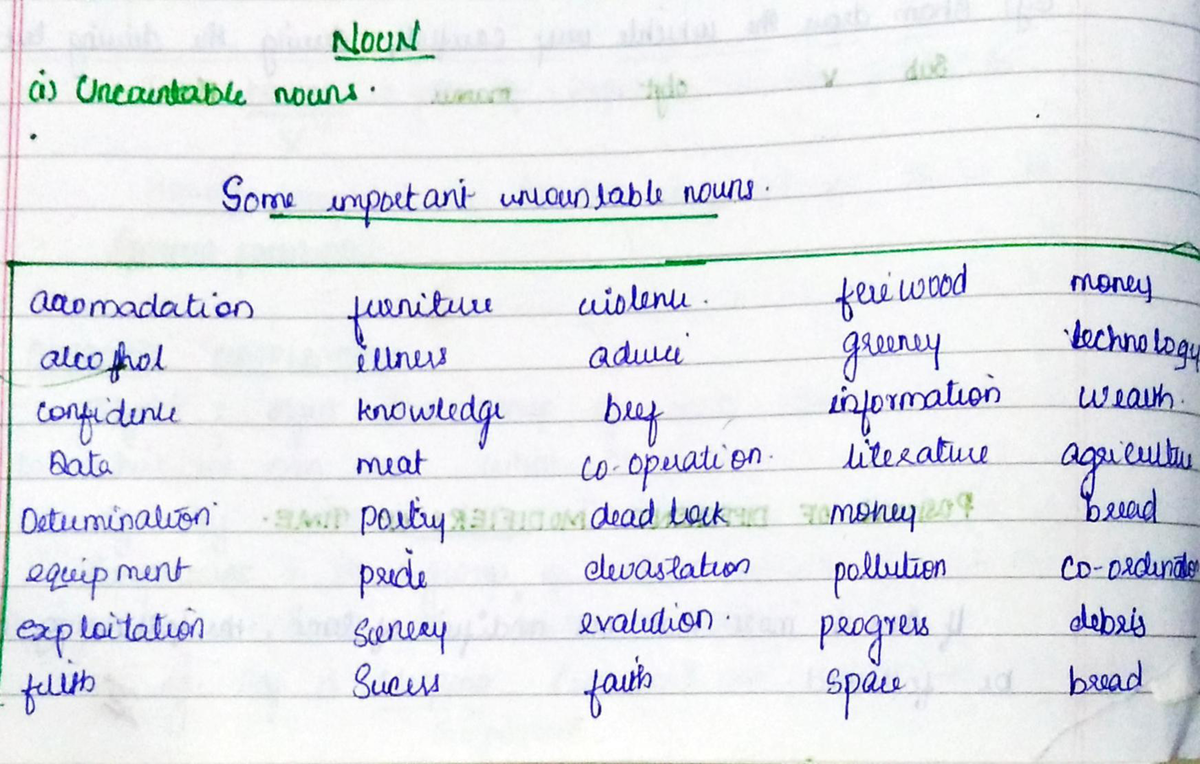 NOUN
(i) Uncountable nouns.
Some important uncountable nouns.
accomadation furniture violence. firewood money
alcohol illness advice greeney technology
confidence knowledge beef information wealth.
Data meat co-operation. literature agriculture
Determination poetry deadlock money bread
equipment pride devastation pollution co-ordinatio
exploitation scenery evaludion. progress debris
filith Sucess faith space bread